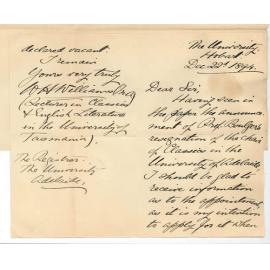 The University
Hobart
Dec 22nd 1894.
Dear Sir
Having seen in
the paper the announce-
ment of Prof. Kelly's
resignation of the Chair
of Classics in the
University of Adelaide
I should be glad to
receive information
as to the appointment,
as it is my intention
to apply for it when
declared vacant.
I remain
Yours very truly
W H Williams (M.A.)
(Lecturer in Classics
& English Literature
in the University of
Tasmania).
The Registrar.
The University
Adelaide.